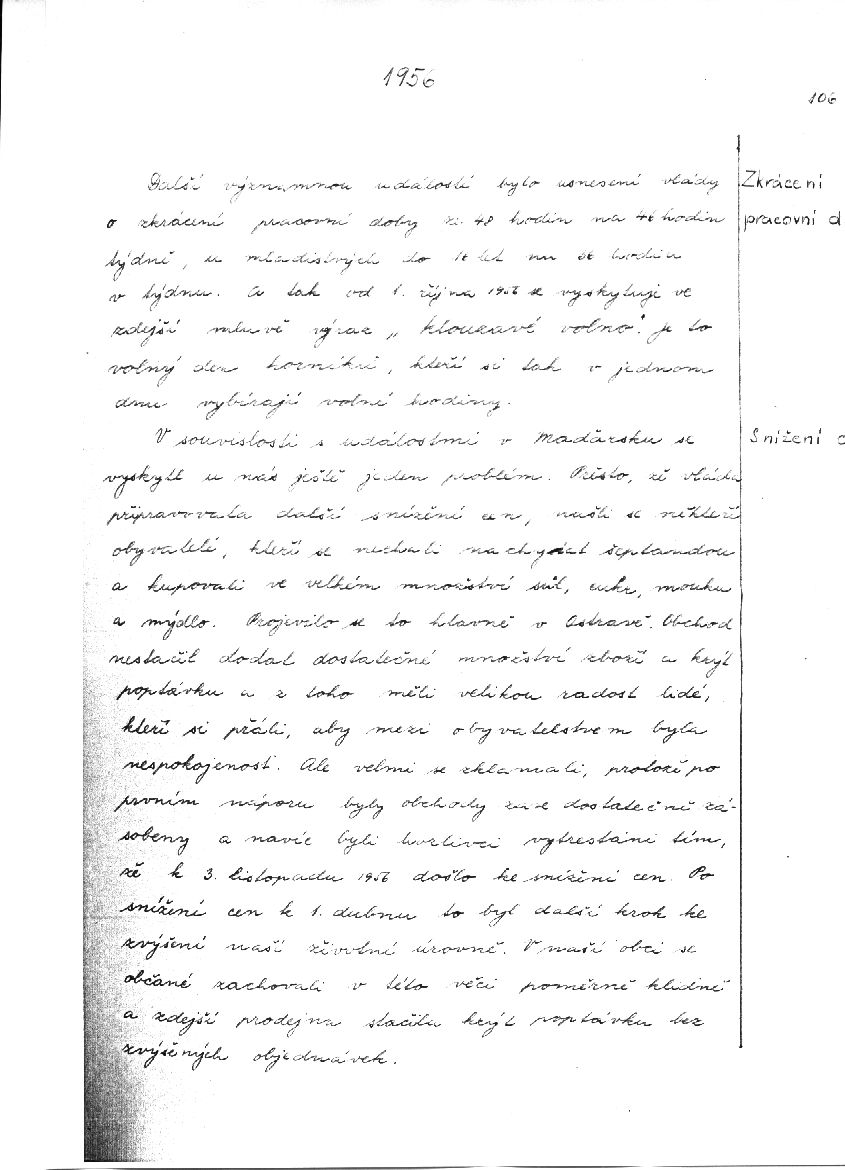 1956
106
Další významnou událostí bylo usnesení vlády
Zkrácení
o zkrácení pracovní doby ze 48 hodin na 46 hodin
pracovní d
týdně, u mladistvých do 16 let na 36 hodin
v týdnu. A tak od 1. října 1956 se vyskytuje ve
zdejší mluvě výraz „klouzavé volno". Je to
volný den horníků, kteří si tak v jednom
dnu vybírají volné hodiny.
V souvislosti s událostmi v Maďarsku se
Snížení c
vyskytl u nás ještě jeden problém. Přesto, že vláda
připravovala další snížení cen, našli se někteří
obyvatelé, kteří se nechali nachytat šeptandou
a kupovali ve velkém množství sůl, cukr, mouku
a mýdlo. Projevilo se to hlavně v Ostravě. Obchod
nestačil dodat dostatečné množství zboží a krýt
poptávku a z toho měli velikou radost lidé,
kteří si přáli, aby mezi obyvatelstvem byla
nespokojenost. Ale velmi se zklamali, protože po
prvním náporu byly obchody zase dostatečně zá-
sobeny a navíc byli horlivci vytrestáni tím,
že k 3. listopadu 1956 došlo ke snížení cen. Po
snížení cen k 1. dubnu to byl další krok ke
zvýšení naší životní úrovně. V naší obci se
občané zachovali v této věci poměrně klidně
a zdejší prodejna stačila krýt poptávku bez
zvýšených objednávek.